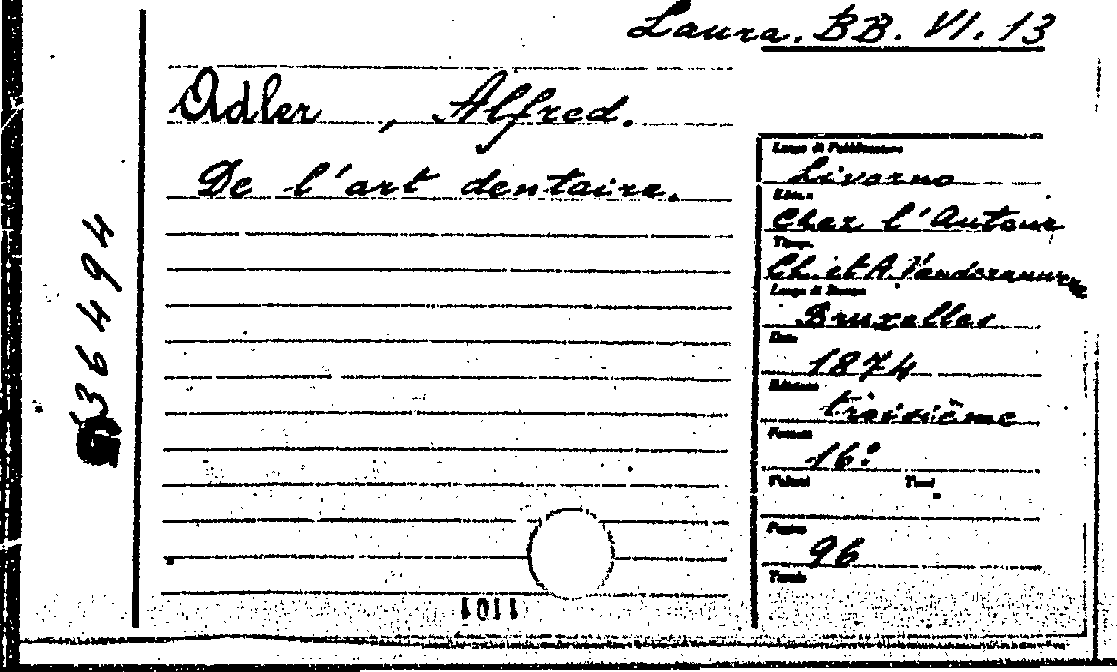 Laura. BB. VI. 13
Adler, Alfred.
De l'art dentaire.
36494
Luogo di Pubblicazione
Livorno
Editore
Chez l'Auteur
Tipogr.
Ch. et A.
Luogo di Stampa
Bruxelles
Data
1874
Edizione
troisième
Formato
16º
Volumi Tomi
Pagine
96
Tavole
1101